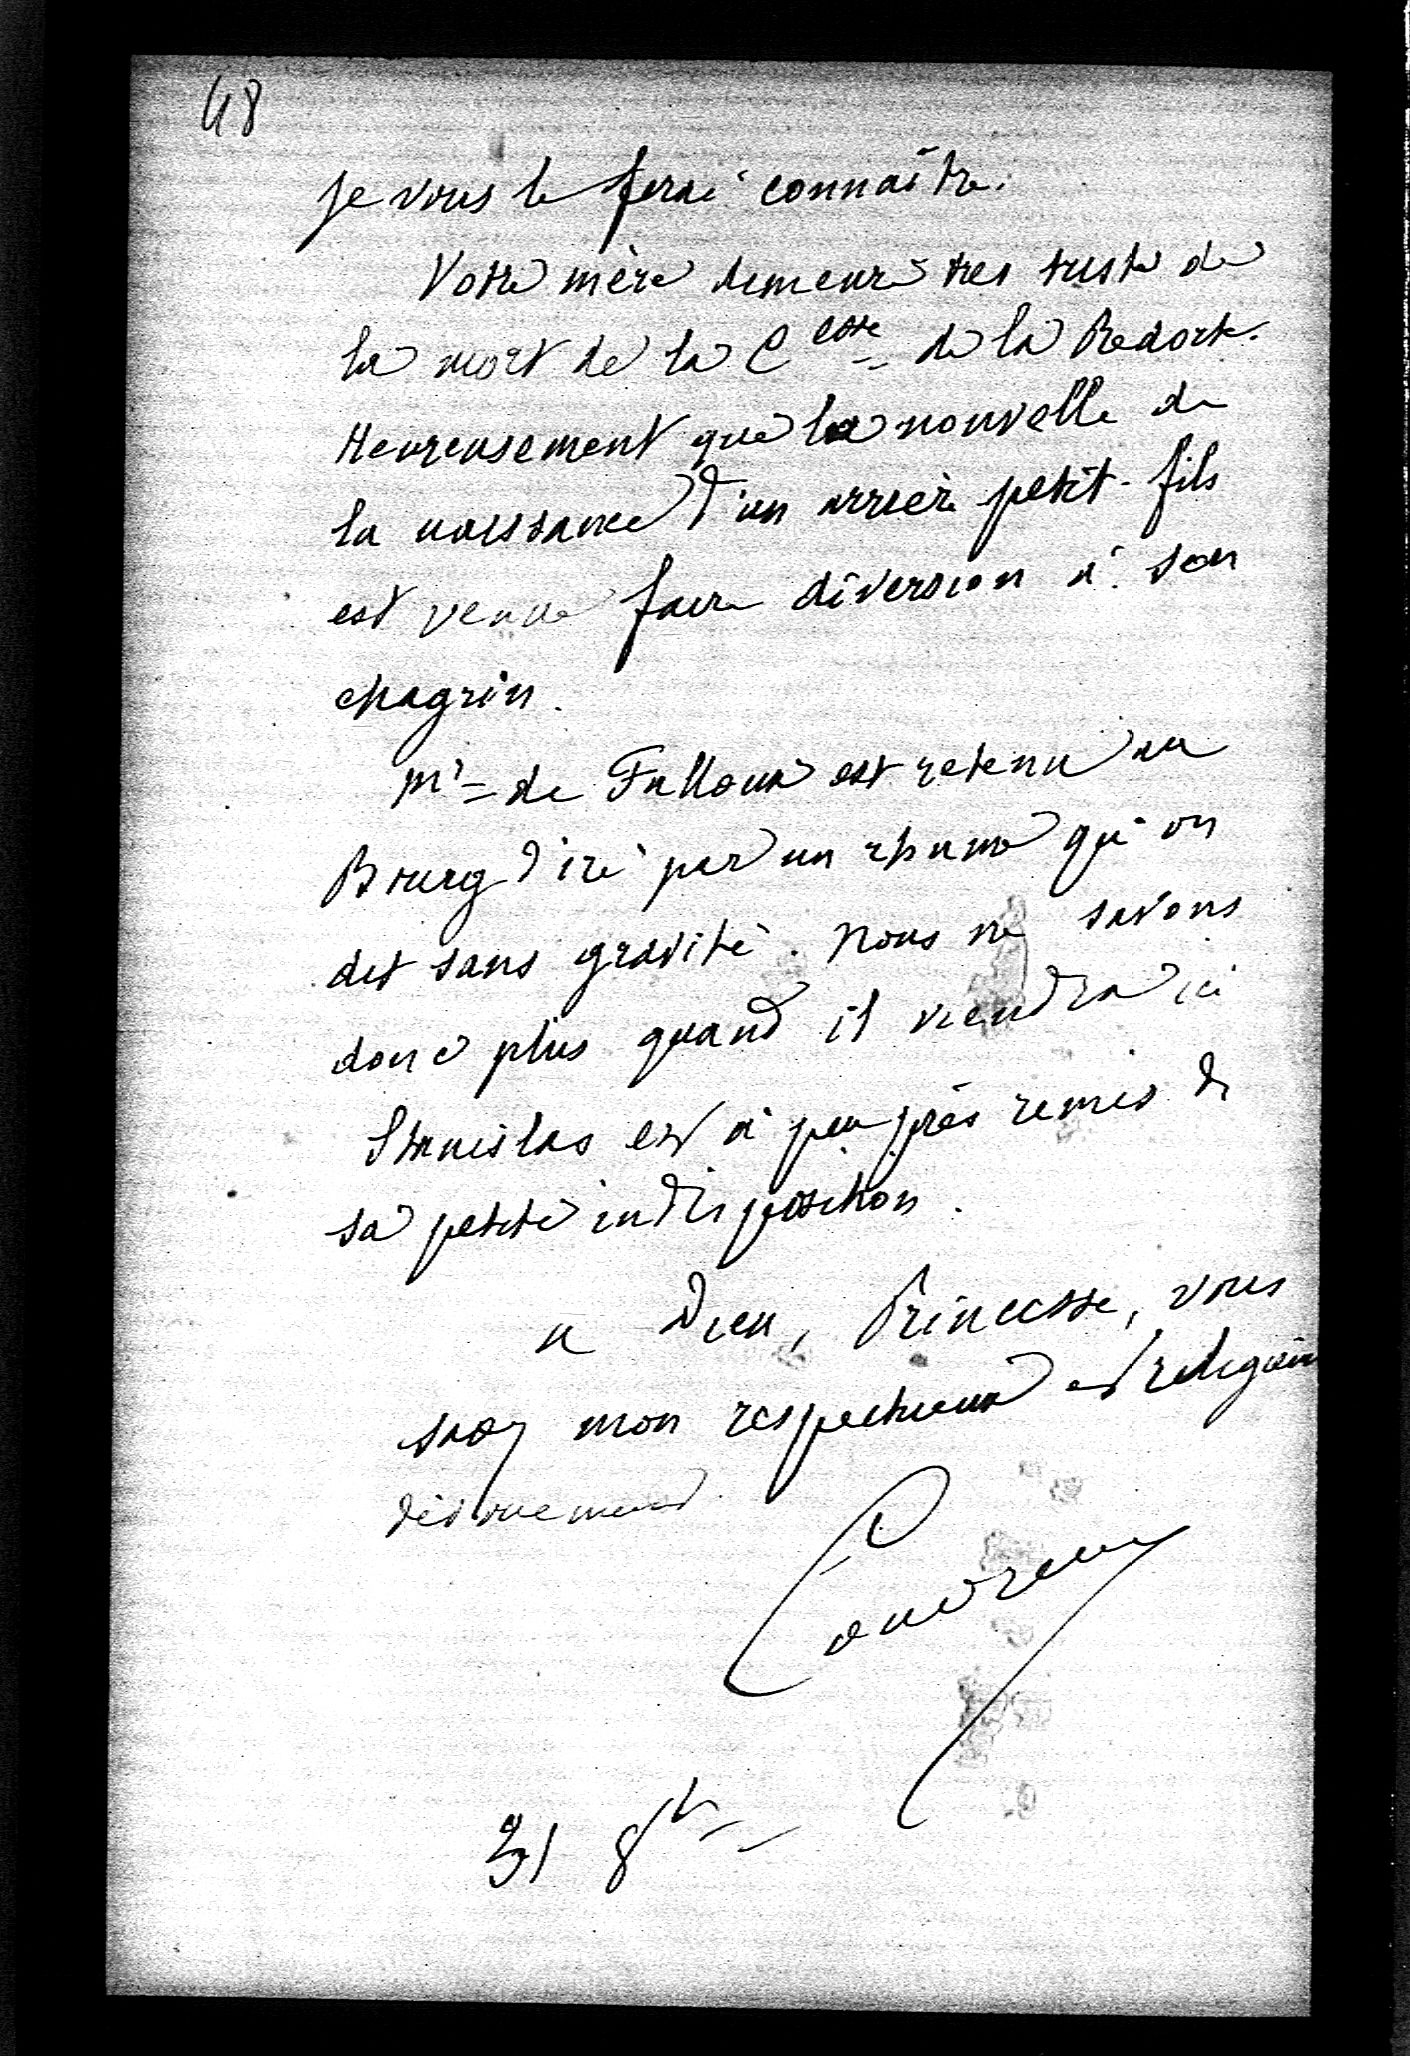 48
je vous le ferai connaître.
Votre mère demeure très triste de
la mort de la C<sup>esse</sup> de la Redorte.
Heureusement que la nouvelle de
la naissance d'un arrière petit-fils
est venue faire diversion à son
chagrin.
M<sup>r</sup> de Falloux est retenu au
Bourg d'iré par un rhume qu'on
dit sans gravité. Nous ne savons
donc plus quand il viendra ici
Stanislas est à peu près remis de
sa petite indisposition.
a Dieu, Princesse, vous
savez mon respectueux et religieux
dévouement.
Couvreux
31 8<sup>bre</sup>